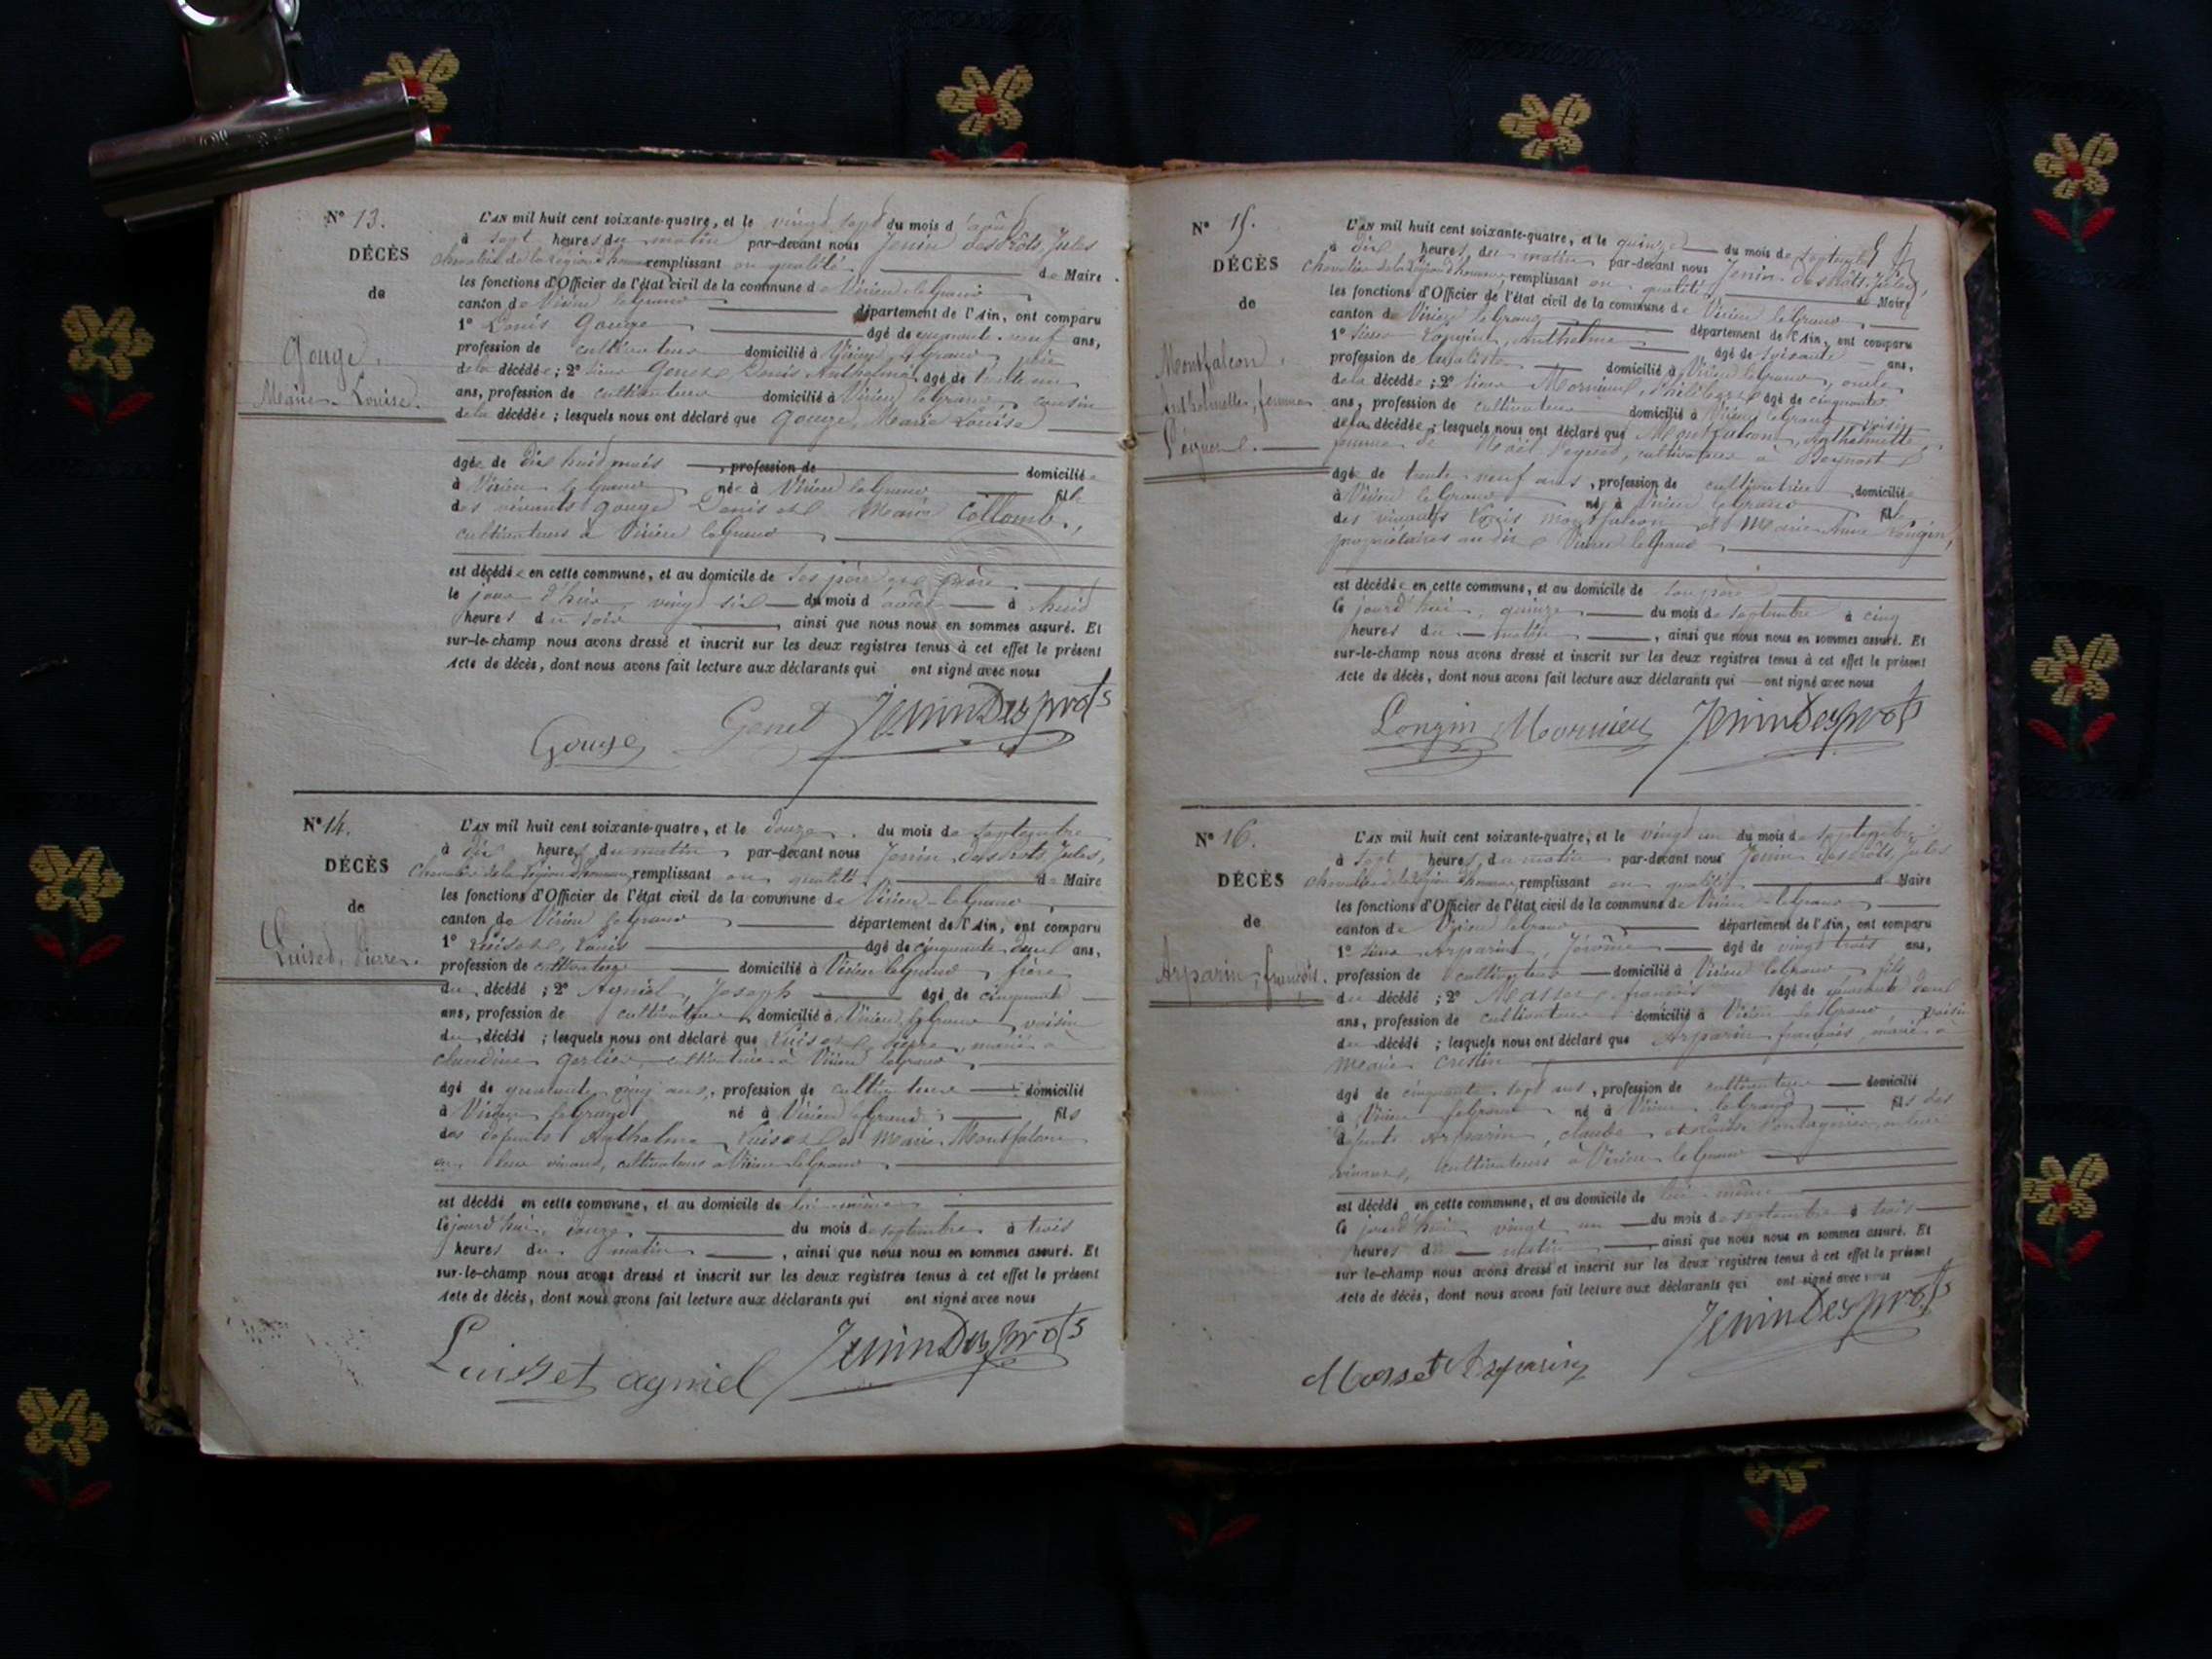 N° 13.
DÉCÈS
de
Gouge,
Marie-Louise.
L'AN mil huit cent soixante-quatre, et le vingt sept du mois d'août
à sept heures du matin par-devant nous Jenin desprôts, Jules
chevalier de la Légion d'honneur remplissant en qualité de Maire
les fonctions d'Officier de l'état civil de la commune de Virieu-le-Grand
canton de Virieu le Grand département de l'Ain, ont comparu
1° Gouge âgé de quarante neuf ans,
profession de cultivateur domicilié à Virieu le Grand, père
de la décédée ; 2° sieur Genet Anthelme âgé de trente un
ans, profession de cultivateur domicilié à Virieu le Grand cousin
de la décédée ; lesquels nous ont déclaré que Gouge, Marie Louise
âgée de dix huit mois , profession de domiciliée
à Virieu le Grand née à Virieu le Grand fille
des vivants Gouge et Marie Collomb,
cultivateurs à Virieu le Grand
est décédée en cette commune, et au domicile de ses père et mère
le jour d'hier vingt six du mois d'août à huit
heures du soir , ainsi que nous nous en sommes assuré. Et
sur-le-champ nous avons dressé et inscrit sur les deux registres tenus à cet effet le présent
acte de décès, dont nous avons fait lecture aux déclarants qui ont signé avec nous
Gouge Genet JeninDesprots
N° 14.
DÉCÈS
de
Luiset, Pierre.
L'AN mil huit cent soixante-quatre, et le douze du mois de septembre
à dix heures du matin par-devant nous Jenin desprôts, Jules,
chevalier de la Légion d'honneur, remplissant en qualité de Maire
les fonctions d'Officier de l'état civil de la commune de Virieu-le-Grand
canton de Virieu le Grand département de l'Ain, ont comparu
1° Luiset, Louis âgé de cinquante deux ans,
profession de cultivateur domicilié à Virieu le Grand, frère
du décédé ; 2° Agniel, Joseph âgé de cinquante
ans, profession de cultivateur domicilié à Virieu le Grand voisin
du décédé ; lesquels nous ont déclaré que Luiset Pierre, marié à
claudine gerlier, cultivatrice à Virieu le Grand
âgé de quarante cinq ans, profession de cultivateur domicilié
à Virieu le Grand né à Virieu le Grand fils
des défunts Anthelme Luiset et Marie Montfalcon
en leur vivant, cultivateurs à Virieu le Grand
est décédé en cette commune, et au domicile de lui-même
le jourd'hui douze du mois de septembre à trois
heures du matin , ainsi que nous nous en sommes assuré. Et
sur-le-champ nous avons dressé et inscrit sur les deux registres tenus à cet effet le présent
acte de décès, dont nous avons fait lecture aux déclarants qui ont signé avec nous
Luisset agniel JeninDesprots
N° 15.
DÉCÈS
de
Montfalcon
Anthelmette, femme
L'AN mil huit cent soixante-quatre, et le quinze du mois de septembre
à dix heures du matin par-devant nous Jenin desprôts, Jules,
chevalier de la Légion d'honneur, remplissant en qualité de Maire
les fonctions d'Officier de l'état civil de la commune de Virieu le Grand
canton de Virieu le Grand département de l'Ain, ont comparu
1° sieur Longin, Anthelme âgé de soixante ans,
profession de domicilié à Virieu le Grand, oncle
de la décédée ; 2° sieur Mornieux, âgé de cinquante
ans, profession de cultivateur domicilié à Virieu le Grand voisin
de la décédée ; lesquels nous ont déclaré que Montfalcon, Anthelmette,
femme de Noël cultivateur à
âgée de trente neuf ans, profession de cultivatrice domiciliée
à Virieu le Grand née à Virieu le Grand fille
des vivants Louis Montfalcon et Marie Anne Longin,
propriétaires au dit Virieu le Grand
est décédée en cette commune, et au domicile de son père
le jourd'hui quinze du mois de septembre à cinq
heures du matin , ainsi que nous nous en sommes assuré. Et
sur-le-champ nous avons dressé et inscrit sur les deux registres tenus à cet effet le présent
acte de décès, dont nous avons fait lecture aux déclarants qui ont signé avec nous
Longin Mornieu JeninDesprots
N° 16.
DÉCÈS
de
Arparin, françois.
L'AN mil huit cent soixante-quatre, et le vingt un du mois de septembre
à sept heures du matin par-devant nous Jenin desprôts, Jules
chevalier de la Légion d'honneur, remplissant en qualité de Maire
les fonctions d'Officier de l'état civil de la commune de Virieu-le-Grand
canton de Virieu le Grand département de l'Ain, ont comparu
1° sieur Arparin, Jérôme âgé de vingt trois ans,
profession de cultivateur domicilié à Virieu le Grand, fils
du décédé ; 2° Masset françois âgé de quarante deux
ans, profession de cultivateur domicilié à Virieu le Grand voisin
du décédé ; lesquels nous ont déclaré que Arparin françois, marié à
Marie
âgé de cinquante sept ans, profession de cultivateur domicilié
à Virieu le Grand né à Virieu le Grand fils des
défunts Arparin, claude et Louise en leur
vivant, cultivateurs à Virieu le Grand
est décédé en cette commune, et au domicile de lui-même
le jourd'hui vingt un du mois de septembre à trois
heures du matin , ainsi que nous nous en sommes assuré. Et
sur-le-champ nous avons dressé et inscrit sur les deux registres tenus à cet effet le présent
acte de décès, dont nous avons fait lecture aux déclarants qui ont signé avec nous
Masset Arparin JeninDesprots